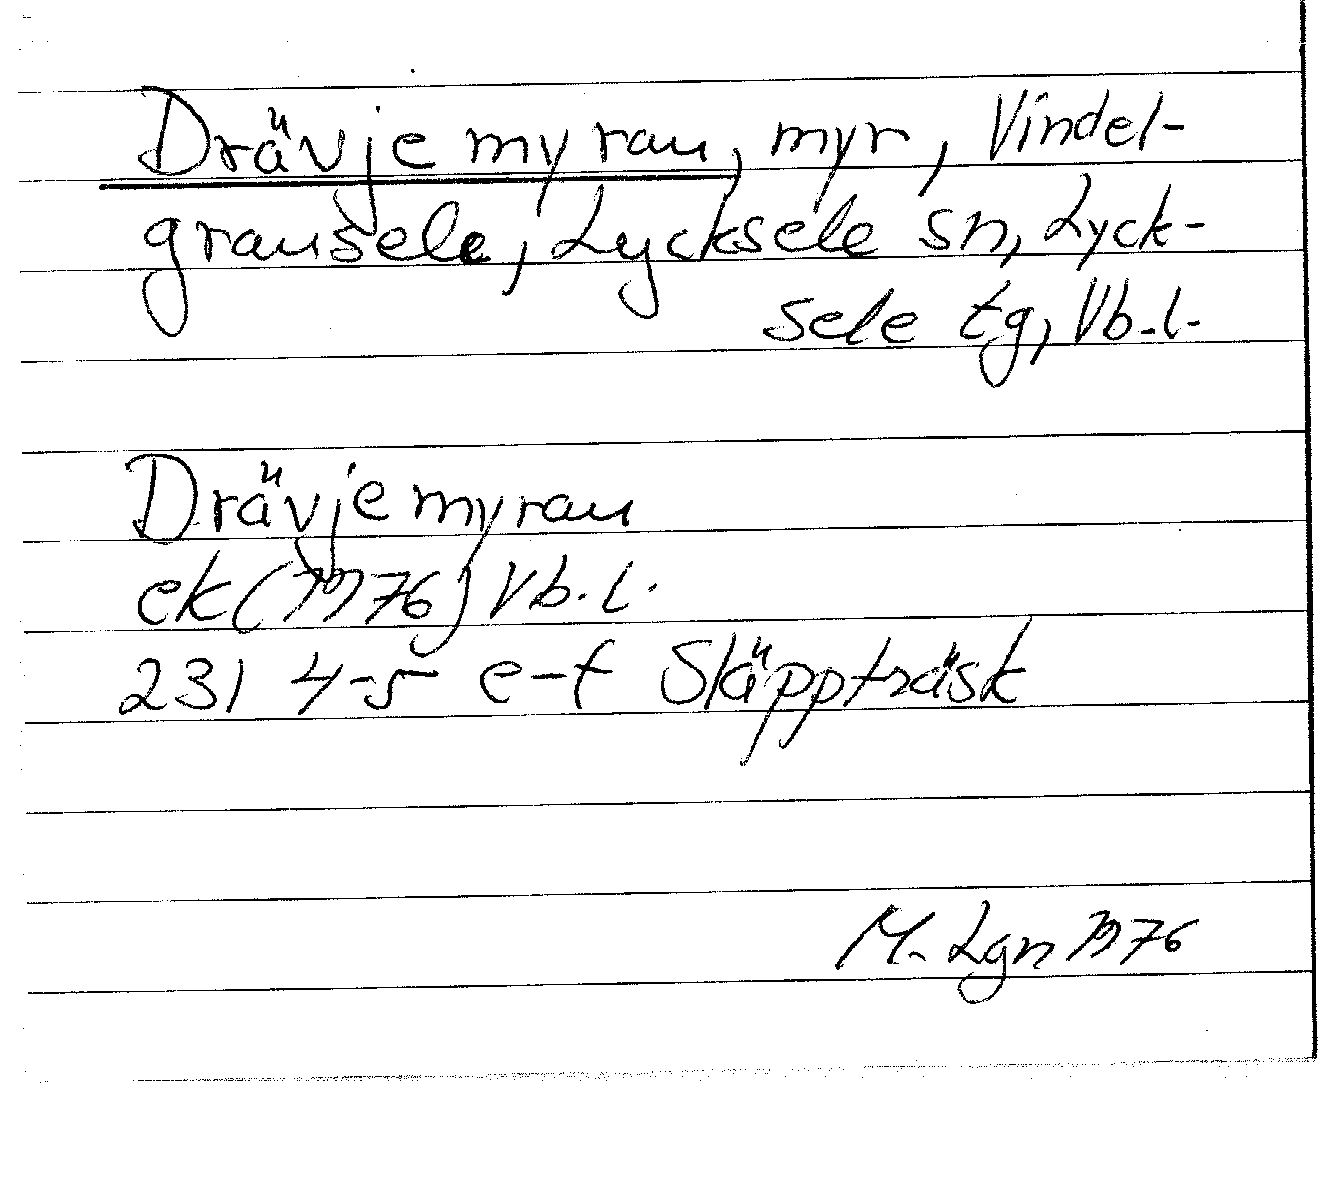 Drävjemyran, myr, Vindel-
gransele, Lycksele sn, Lyck-
sele tg, Vb.l.
Drävjemyran
ek (1976) Vb.l.
231 4-5 e-f Släppträsk
M. Lgn 1976